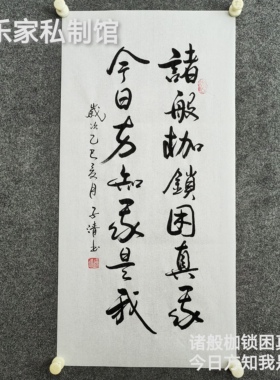 乐家私制馆
諸般枷鎖困真我
今日方知我是我
歲次乙巳亥月子清书
诸般枷锁困真
今日方知我是